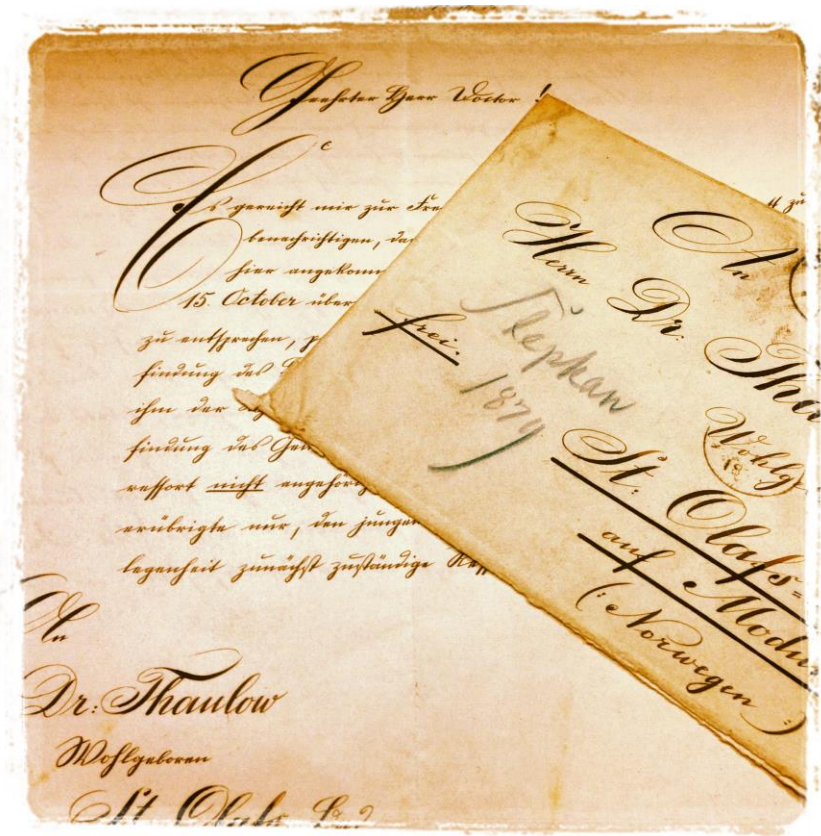 Geehrter Herr Doctor!
Es gereicht mir zur Fre
benachrichtigen, da
hier angekom
15. October über
zu entsprechen, p
findung des
ihm der
findung des Gen
ressort nicht angehöri
erübrigte nur, den jungen
legenheit zunächst zuständige Ress
An
Dr: Thaulow
Wohlgeboren
St Olafs
An
Herrn Dr. Tha
frei.
Stephan
1879
Wohlg
St. Olafs-
auf Modu
(: Norwegen :)